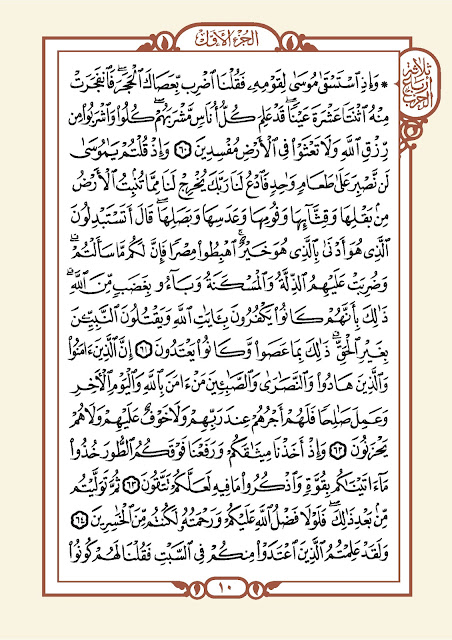 الجزء الأول
ثلاثة أرباع الحزب
۞ وَإِذِ ٱسْتَسْقَىٰ مُوسَىٰ لِقَوْمِهِۦ فَقُلْنَا ٱضْرِب بِّعَصَاكَ ٱلْحَجَرَۖ فَٱنفَجَرَتْ
مِنْهُ ٱثْنَتَا عَشْرَةَ عَيْنًاۖ قَدْ عَلِمَ كُلُّ أُنَاسٍ مَّشْرَبَهُمْۖ كُلُوا۟ وَٱشْرَبُوا۟ مِن
رِّزْقِ ٱللَّهِ وَلَا تَعْثَوْا۟ فِى ٱلْأَرْضِ مُفْسِدِينَ ٦٠ وَإِذْ قُلْتُمْ يَـٰمُوسَىٰ
لَن نَّصْبِرَ عَلَىٰ طَعَامٍ وَٰحِدٍ فَٱدْعُ لَنَا رَبَّكَ يُخْرِجْ لَنَا مِمَّا تُنۢبِتُ ٱلْأَرْضُ
مِنۢ بَقْلِهَا وَقِثَّآئِهَا وَفُومِهَا وَعَدَسِهَا وَبَصَلِهَاۖ قَالَ أَتَسْتَبْدِلُونَ
ٱلَّذِى هُوَ أَدْنَىٰ بِٱلَّذِى هُوَ خَيْرٌۚ ٱهْبِطُوا۟ مِصْرًا فَإِنَّ لَكُم مَّا سَأَلْتُمْۗ
وَضُرِبَتْ عَلَيْهِمُ ٱلذِّلَّةُ وَٱلْمَسْكَنَةُ وَبَآءُو بِغَضَبٍ مِّنَ ٱللَّهِۗ
ذَٰلِكَ بِأَنَّهُمْ كَانُوا۟ يَكْفُرُونَ بِـَٔايَـٰتِ ٱللَّهِ وَيَقْتُلُونَ ٱلنَّبِيِّـۧنَ
بِغَيْرِ ٱلْحَقِّۗ ذَٰلِكَ بِمَا عَصَوا۟ وَّكَانُوا۟ يَعْتَدُونَ ٦١ إِنَّ ٱلَّذِينَ ءَامَنُوا۟
وَٱلَّذِينَ هَادُوا۟ وَٱلنَّصَـٰرَىٰ وَٱلصَّـٰبِـِٔينَ مَنْ ءَامَنَ بِٱللَّهِ وَٱلْيَوْمِ ٱلْـَٔاخِرِ
وَعَمِلَ صَـٰلِحًا فَلَهُمْ أَجْرُهُمْ عِندَ رَبِّهِمْ وَلَا خَوْفٌ عَلَيْهِمْ وَلَا هُمْ
يَحْزَنُونَ ٦٢ وَإِذْ أَخَذْنَا مِيثَـٰقَكُمْ وَرَفَعْنَا فَوْقَكُمُ ٱلطُّورَ خُذُوا۟
مَآ ءَاتَيْنَـٰكُم بِقُوَّةٍ وَٱذْكُرُوا۟ مَا فِيهِ لَعَلَّكُمْ تَتَّقُونَ ٦٣ ثُمَّ تَوَلَّيْتُم
مِّنۢ بَعْدِ ذَٰلِكَۖ فَلَوْلَا فَضْلُ ٱللَّهِ عَلَيْكُمْ وَرَحْمَتُهُۥ لَكُنتُم مِّنَ ٱلْخَـٰسِرِينَ ٦٤
وَلَقَدْ عَلِمْتُمُ ٱلَّذِينَ ٱعْتَدَوْا۟ مِنكُمْ فِى ٱلسَّبْتِ فَقُلْنَا لَهُمْ كُونُوا۟
١٠